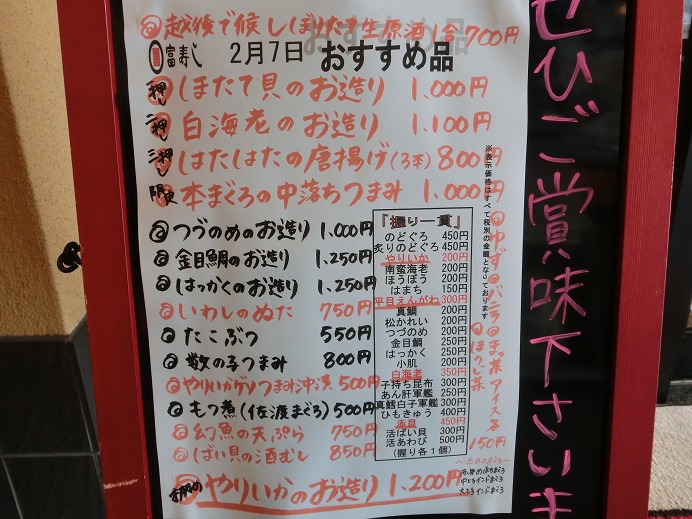 越後で候しぼりたて生原酒1合700円
富寿し 2月7日 おすすめ品
一押し ほたて貝のお造り 1,000円
二押し 白海老のお造り 1,100円
三押し はたはたの唐揚げ(3本) 800円
限定 本まぐろの中落ちつまみ 1,000円
つづのめのお造り 1,000円
金目鯛のお造り 1,250円
はっかくのお造り 1,250円
いわしのぬた 750円
たこぶつ 550円
数の子つまみ 800円
やりいかゲソつまみ 500円
もつ煮(佐渡まぐろ) 500円
幻魚の天ぷら 750円
しばい貝の酒むし 850円
やりいかのお造り 1,200円
『握り一貫』
のどぐろ 450円
炙りのどぐろ 450円
やりいか 200円
南蛮海老 200円
ほうぼう 200円
はまち 150円
平目えんがわ 300円
真鯛 200円
松かれい 200円
つづのめ 200円
金目鯛 250円
はっかく 250円
小肌 200円
白海老 350円
子持ち昆布 300円
あん肝軍艦 300円
真鱈白子軍艦 300円
ひもきゅう 400円
赤貝 450円
活ばい貝 300円
活あわび 500円
(握り各1個)
※表示価格はすべて税別の金額となっております
ゆず バニラ まっ茶 アイス各
ほうじ茶
150円
〜本日のまぐろ〜
中とろ インドまぐろ
大とろ インドまぐろ
ぜひご賞味下さいま